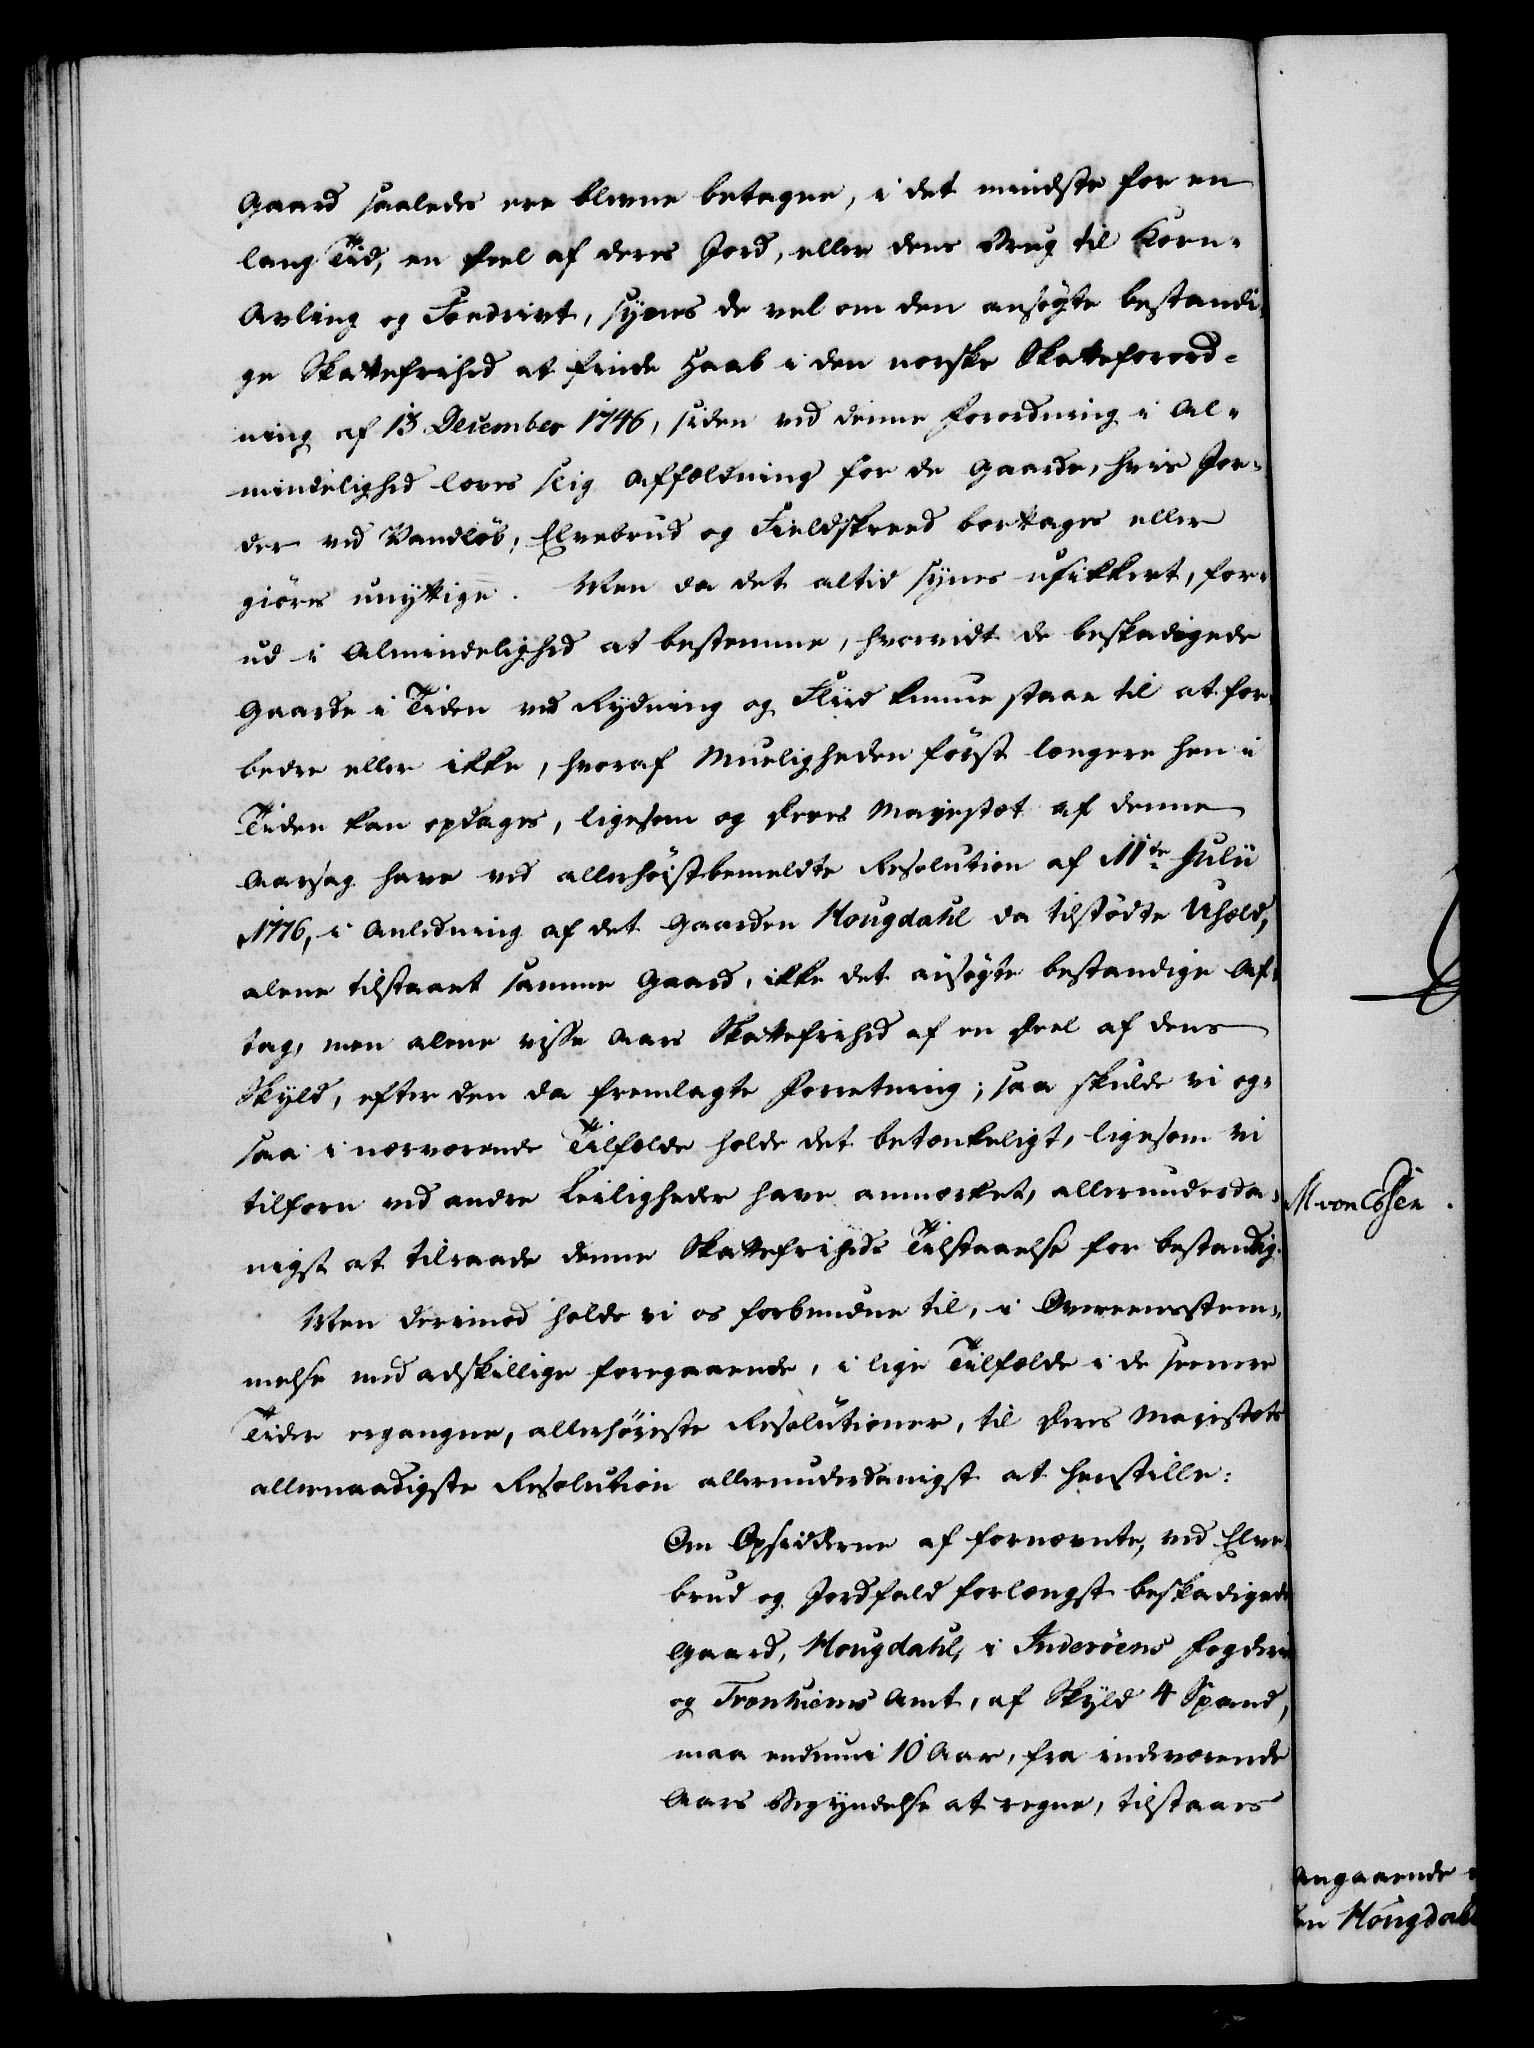 Gaard saaledes ere blevne betagne, i det mindste for en
lang Tid, en Deel af deres Jord, eller dens Brug til Korn-
Avling og Foedrivt, synes de vel om den ansøgte bestandi-
ge Skattefrihed at finde Haab i den norske Skatteforord-
ning af 13 December 1746, siden ved denne Forordning i Al-
mindelighed loves slig Affældning for de Gaarde, hvis Jor-
der ved Vandløb, Elvebrud og Fieldskreed borttages eller
giöres unyttige. Men da det altid synes usikkert, for-
ud i Almindelighed at bestemme, hvorvidt de beskadigede
Gaarde i Tiden ved Rydning og Fliid kunne staae til at for-
bedre eller ikke, hvoraf Mueligheden først længere hen i
Tiden kan opdages, ligesom og Deres Majestæt af denne
Aarsag have ved allerhøistbemeldte Resolution af 11te Julii
1776, i Anledning af det Gaarden Hougdahl da tilstødte Uheld,
alene tilstaaet samme Gaard, ikke det ansøgte bestandige Af-
tag, men alene visse Aars Skattefrihed af en Deel af dens
Skyld, efter den da fremlagte Forretning; saa skulde vi og-
saa i nærværende Tilfælde holde det betænkeligt, ligesom vi
tilforn ved andre Leiligheder have anmærket, allerunderda-
nigst at tilraade denne Skattefriheds Tilstaaelse for bestandig.
Men derimod holde vi os forbundne til, i Overeensstem-
melse med adskillige foregaaende, i lige Tilfælde i de seenere
Tider ergangne, allerhøieste Resolutioner, til Deres Majestæts
allernaadigste Resolution allerunderdanigst at henstille:
Om Opsidderne af fornævnte, ved Elve-
brud og Jordfald forlængst beskadigede
Gaard, Hougdahl, i Inderöens Fogderie
og Tronhiems Amt, af Skyld 4 Spand,
maa endnu i 10 Aar, fra indeværende
Aars Begyndelse at regne, tilstaaes
M von Essen.
Angaaende
en Hougdahl